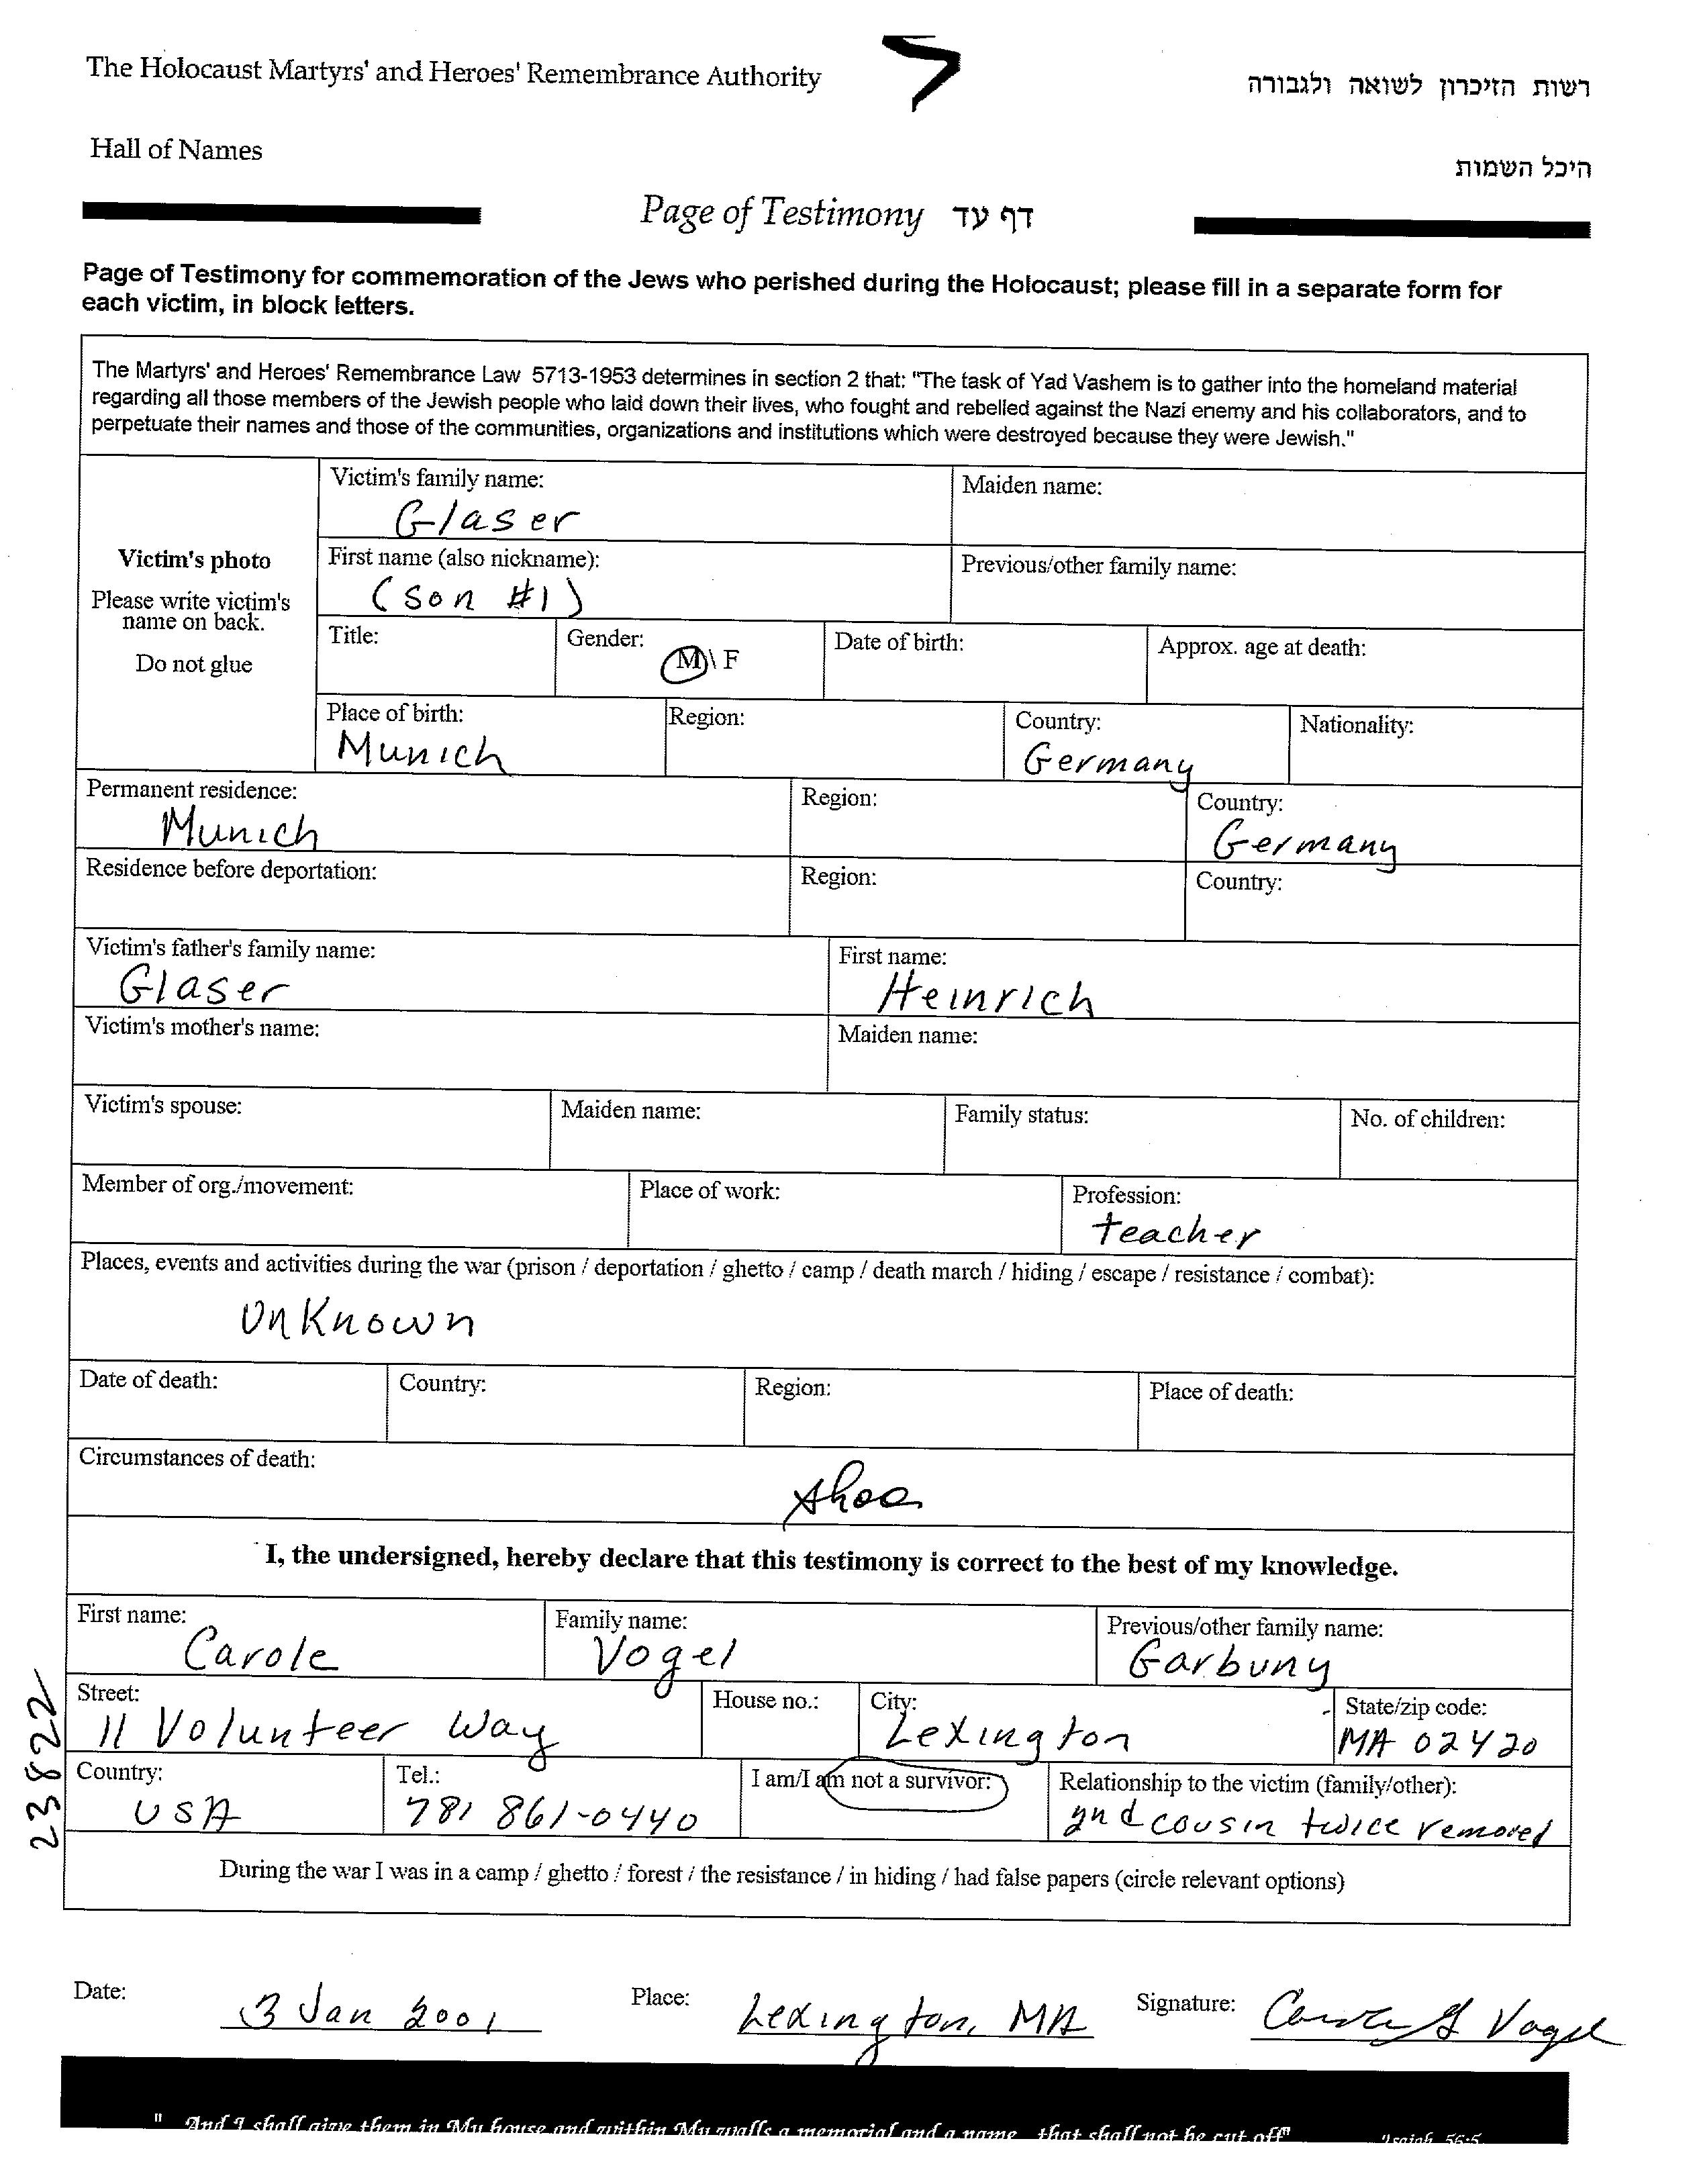 The Holocaust Martyrs' and Heroes' Remembrance Authority
רשות הזיכרון לשואה ולגבורה
Hall of Names
היכל השמות
Page of Testimony דף עד
Page of Testimony for commemoration of the Jews who perished during the Holocaust; please fill in a separate form for
each victim, in block letters.
The Martyrs' and Heroes' Remembrance Law 5713-1953 determines in section 2 that: "The task of Yad Vashem is to gather into the homeland material
regarding all those members of the Jewish people who laid down their lives, who fought and rebelled against the Nazi enemy and his collaborators, and to
perpetuate their names and those of the communities, organizations and institutions which were destroyed because they were Jewish."
Victim's photo
Please write victim's
name on back.
Do not glue
Victim's family name:
Glaser
Maiden name:
First name (also nickname):
(son #1)
Previous/other family name:
Title:
Gender:
M\F
Date of birth:
Approx. age at death:
Place of birth:
Munich
Region:
Country:
Germany
Nationality:
Permanent residence:
Munich
Region:
Country:
Germany
Residence before deportation:
Region:
Country:
Victim's father's family name:
Glaser
First name:
Heinrich
Victim's mother's name:
Maiden name:
Victim's spouse:
Maiden name:
Family status:
No. of children:
Member of org./movement:
Place of work:
Profession:
teacher
Places, events and activities during the war (prison / deportation / ghetto / camp / death march / hiding / escape / resistance / combat):
UnKnown
Date of death:
Country:
Region:
Place of death:
Circumstances of death:
Shoa
I, the undersigned, hereby declare that this testimony is correct to the best of my knowledge.
First name:
Carole
Family name:
Vogel
Previous/other family name:
Garbuny
Street:
11 Volunteer Way
House no.:
City:
Lexington
State/zip code:
MA 02420
Country:
USA
Tel.:
781 861-0440
I am/I am not a survivor:
Relationship to the victim (family/other):
2nd cousin twice removed
During the war I was in a camp / ghetto / forest / the resistance / in hiding / had false papers (circle relevant options)
23822
Date:
3 Jan 2001
Place:
Lexington, MA
Signature:
Carole G Vogel
" And I shall give them in My house and within My walls a memorial and a name...that shall not be cut off" Isaiah, 56:5